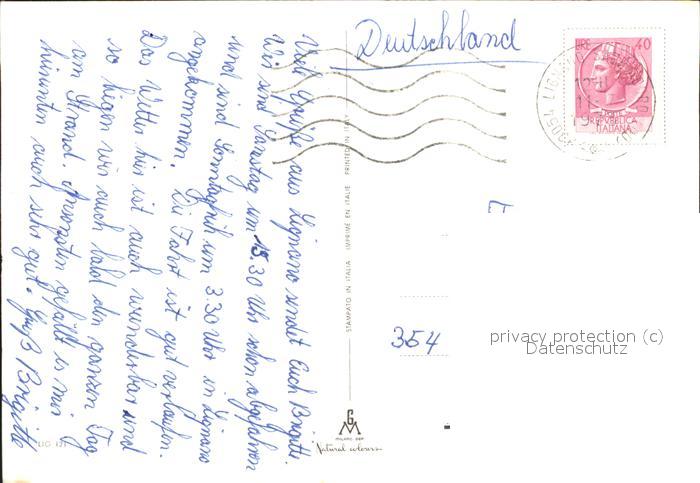 Deutschland
LIRE 40
POSTE
REPVBBLICA
ITALIANA
Viele Grüße aus Lignano sendet Euch Brigitte.
Wir sind Samstag um 15.30 Uhr schon abgefahren
und sind Sonntagfrüh um 3.30 Uhr in Lignano
angekommen. Die Fahrt ist gut verlaufen.
Das Wetter hier ist auch wunderbar und
so liegen wir auch bald den ganzen Tag
am Strand. Ansonsten gefällt es mir
hinunten auch sehr gut. Gruß Brigitte
STAMPATO IN ITALIA IMPRIMÉ EN ITALIE PRINTED IN ITALY
354
privacy protection (c)
Datenschutz
GM
MILANO
Natural colours
LIG 121